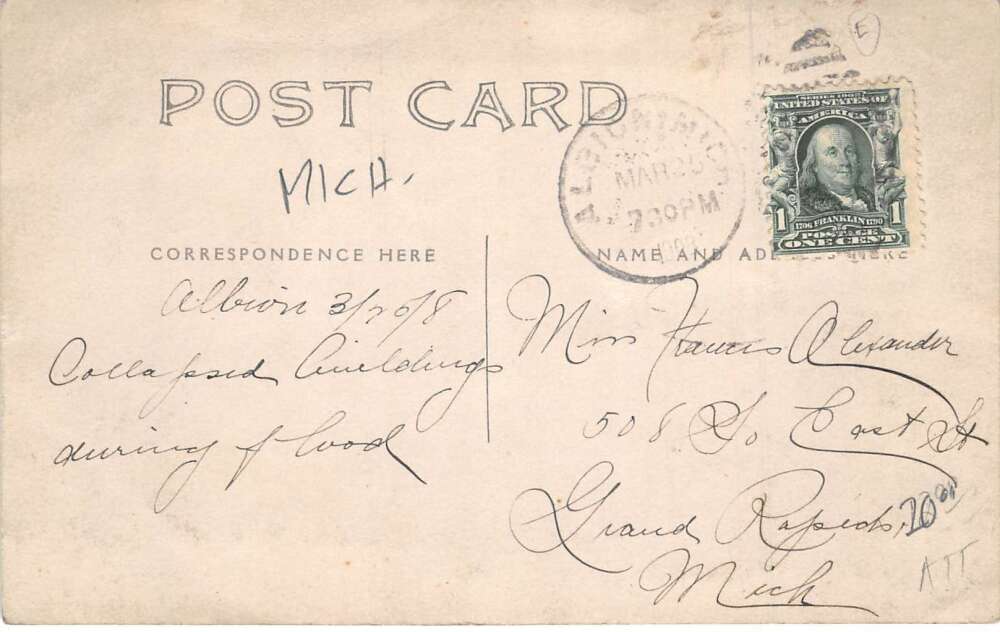 E
POST CARD
MICH.
ALBION, MICH.
MAR 25
7 30 PM
SERIES 1902
UNITED STATES OF
AMERICA
1706 FRANKLIN 1790
1 1
POSTAGE
ONE CENT
CORRESPONDENCE HERE
NAME AND ADDRESS HERE
Albion 3/25/8
Collapsed buildings
during flood
Miss Frances Alexander
508 So East St
Grand Rapids,
Mich
ATT